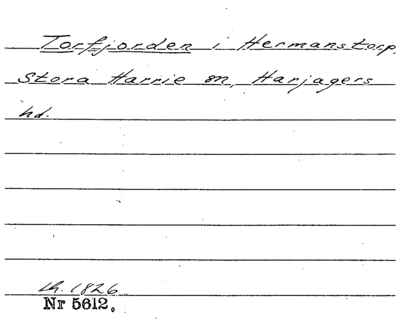 Torfjorden i Hermanstorp,
Stora Harrie sn, Harjagers
hd.
lh. 1826
Nr 5612.